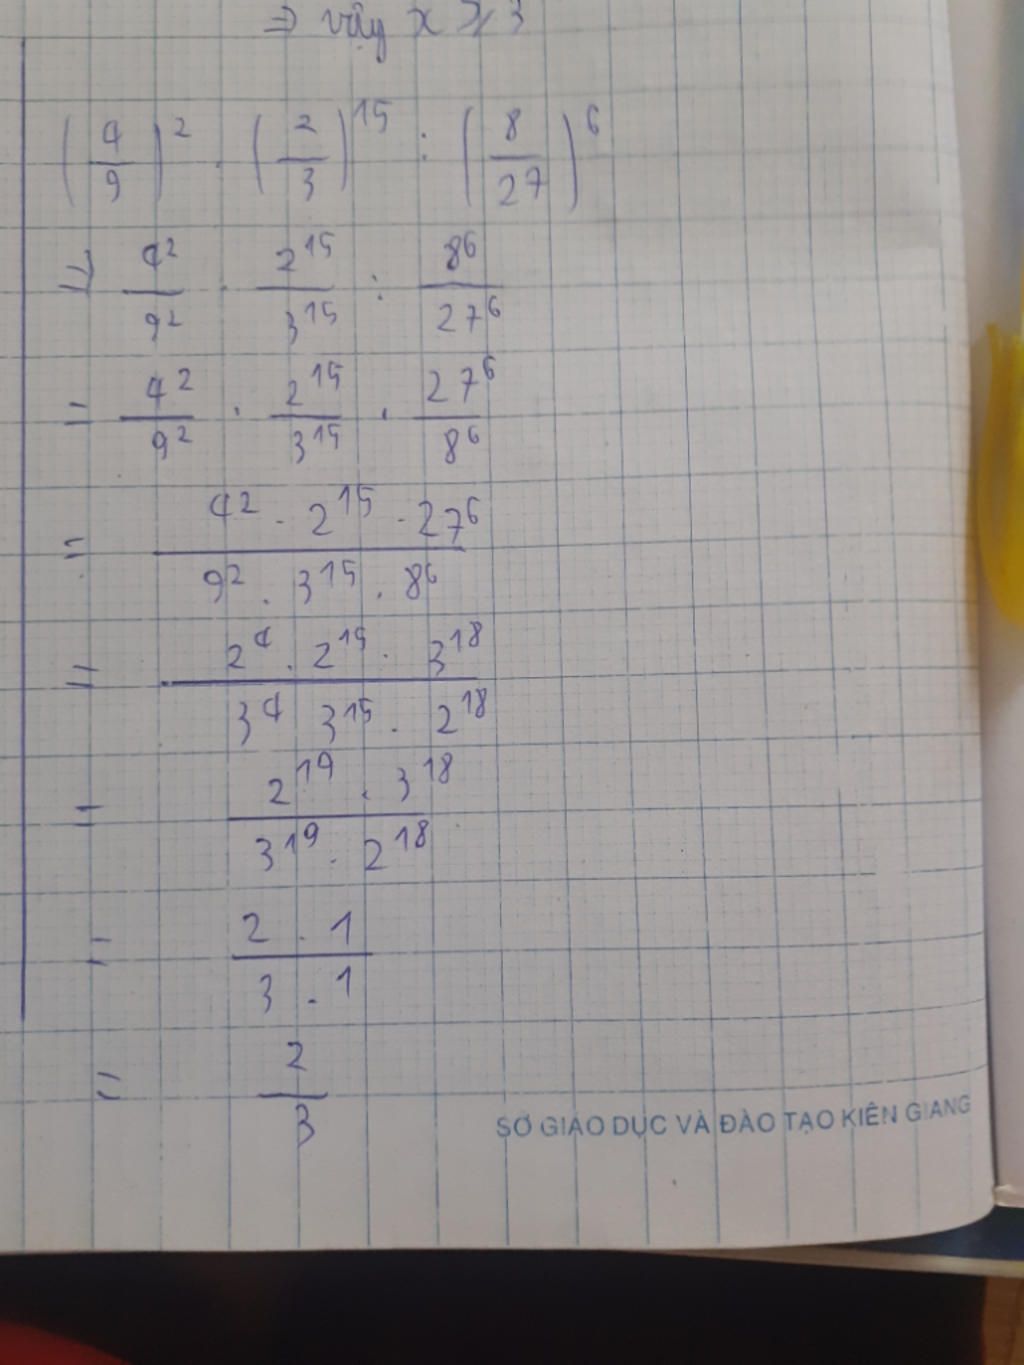 ⇒ vậy x ⩾ 3
(4/9)² . (2/3)¹⁵ : (8/27)⁶
⇒ 4²/9² . 2¹⁵/3¹⁵ : 8⁶/27⁶
= 4²/9² . 2¹⁵/3¹⁵ . 27⁶/8⁶
= 4² . 2¹⁵ . 27⁶ / 9² . 3¹⁵ . 8⁶
= 2⁴ . 2¹⁵ . 3¹⁸ / 3⁴ 3¹⁵ . 2¹⁸
= 2¹⁹ . 3¹⁸ / 3¹⁹ . 2¹⁸
= 2 . 1 / 3 . 1
= 2/3
SỞ GIÁO DỤC VÀ ĐÀO TẠO KIÊN GIANG